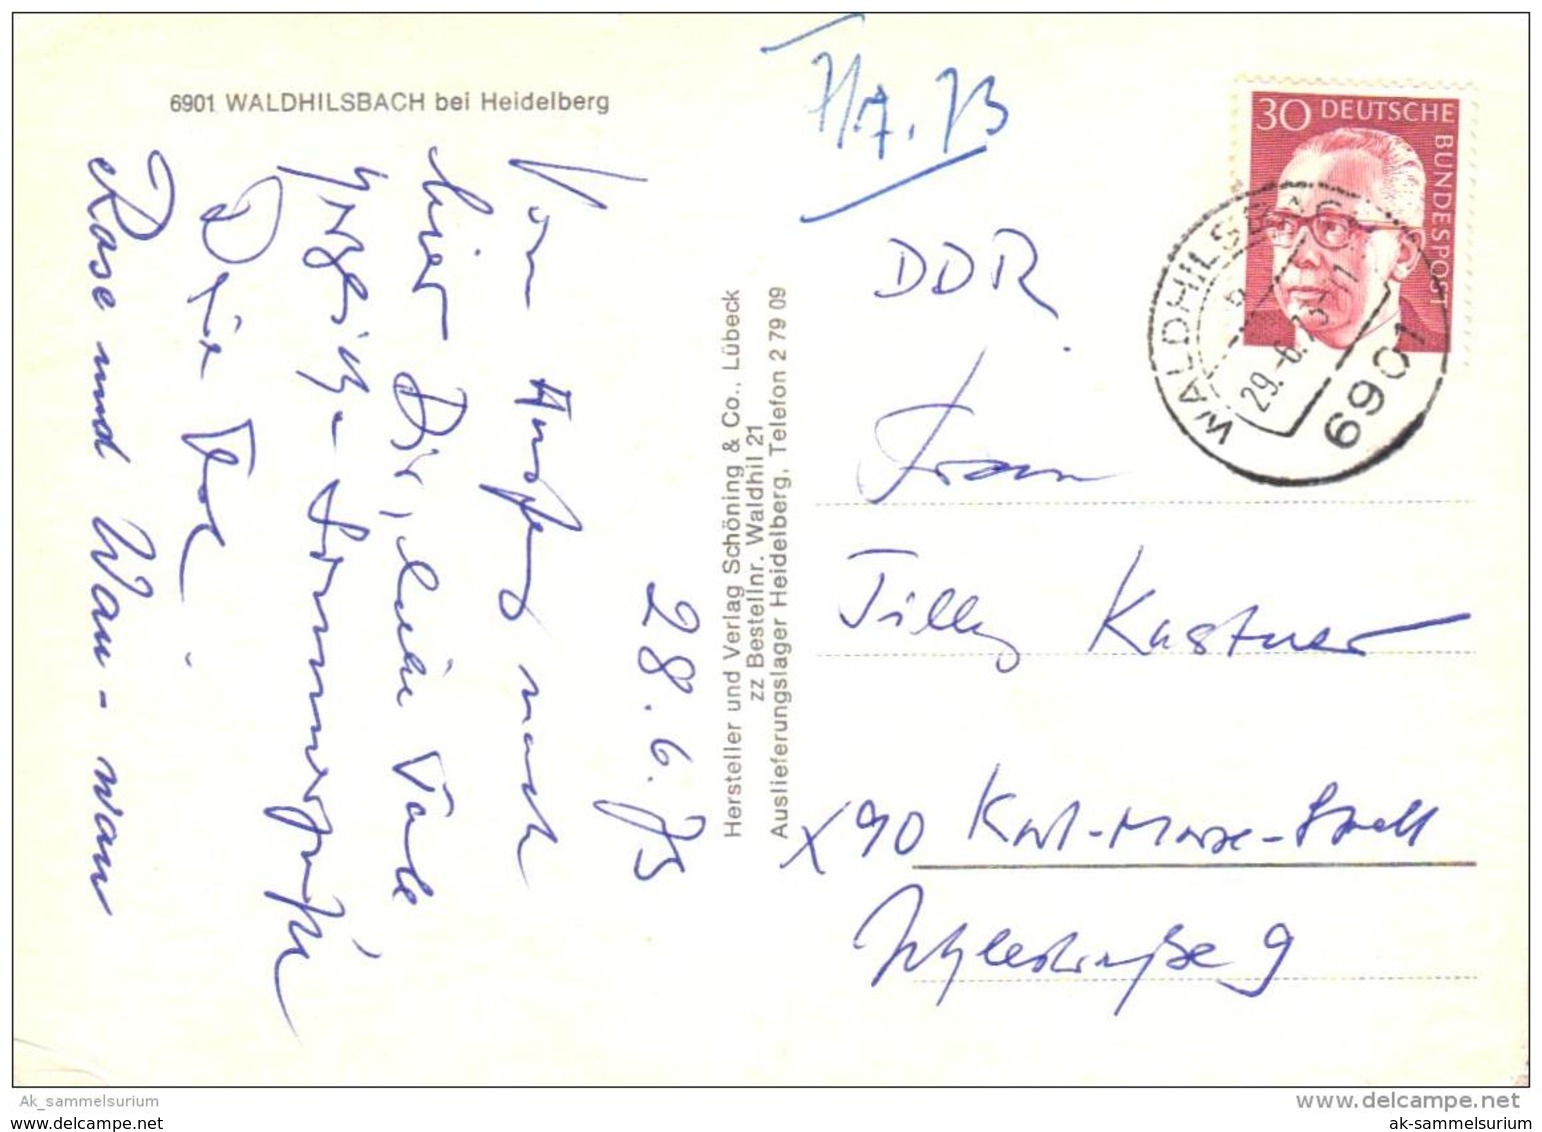 6901 WALDHILSBACH bei Heidelberg
7/7.73
30 DEUTSCHE BUNDESPOST
WALDHILSBACH
29.-6.73-11
6901
DDR
Frau
Tilly Kastner
X90 Karl-Marx-Stadt
9
Hersteller und Verlag Schöning & Co., Lübeck
zz Bestellnr. Waldhil 21
Auslieferungslager Heidelberg, Telefon 2 79 09
28.6.73
Von nach
hier Dir, liebe
Dein
Rose und Wau-wau
Ak_sammelsurium
www.delcampe.net
www.delcampe.net
ak-sammelsurium